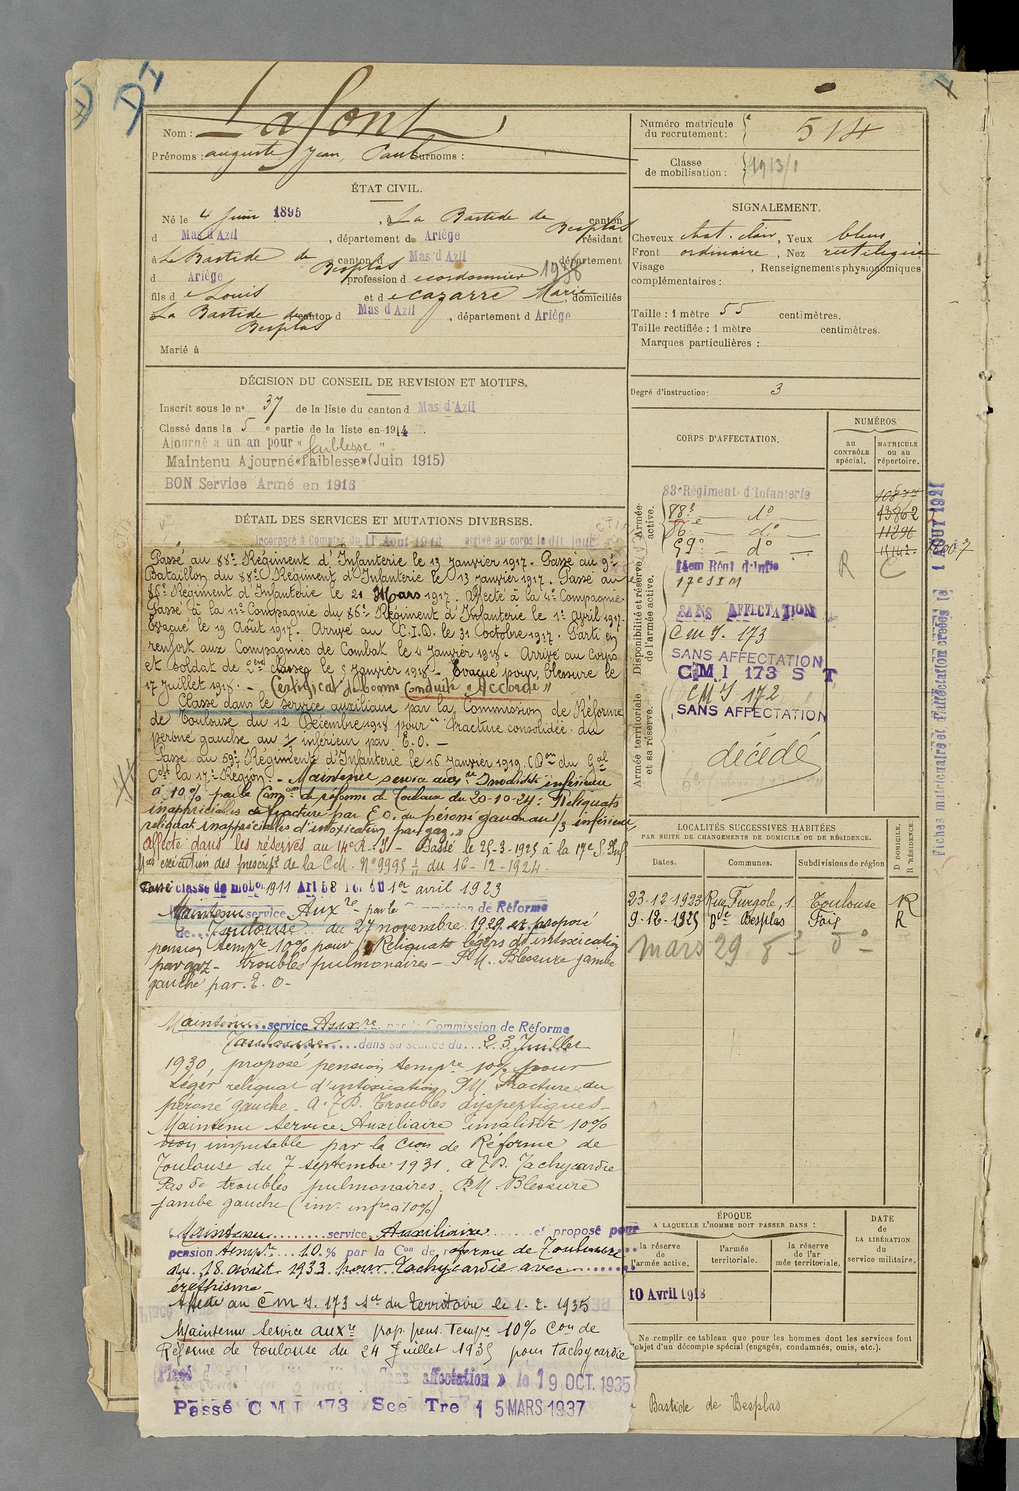 Nom : Lafont
Prénoms : auguste Jean, Paul Surnoms :
Numéro matricule du recrutement : 514
Classe de mobilisation : 1913/1
ÉTAT CIVIL.
Né le 4 Juin 1895, à La Bastide de Besplas canton
d Mas d'Azil, département de Ariège résidant
à La Bastide de Besplas canton d Mas d'Azil département
d Ariège profession de cordonnier 1938
fils de Louis et de Cazarre Marie domiciliés
La Bastide de Besplas canton d Mas d'Azil, département d Ariège
Marié à
SIGNALEMENT.
Cheveux chat. clair, Yeux bleus
Front ordinaire, Nez rectiligne
Visage , Renseignements physionomiques
complémentaires :
Taille : 1 mètre 55 centimètres.
Taille rectifiée : 1 mètre centimètres.
Marques particulières :
Degré d'instruction : 3
DÉCISION DU CONSEIL DE REVISION ET MOTIFS.
Inscrit sous le n° 37 de la liste du canton d Mas d'Azil
Classé dans la 5e partie de la liste en 1914
Ajourné à un an pour "faiblesse"
Maintenu Ajourné «faiblesse» (Juin 1915)
BON Service Armé en 1916
DÉTAIL DES SERVICES ET MUTATIONS DIVERSES.
Incorporé à Compter du 11 Août 1916 arrivé au corps le dit jour
Passé au 88e Régiment d'Infanterie le 13 janvier 1917. Passé au 9e
Bataillon du 88e Régiment d'Infanterie le 13 janvier 1917. Passé au
86e Régiment d'Infanterie le 21 Mars 1917. Affecté à la 4e Compagnie.
Passé à la 11e Compagnie du 86e Régiment d'Infanterie le 1er avril 1917.
Évacué le 19 Août 1917. Arrivé au C.I.D. le 31 Octobre 1917. Parti en
renfort aux Compagnies de Combat le 4 Janvier 1918. Arrivé au corps
et soldat de 2nd classe le 5 Janvier 1918. Evacué pour blessure le
17 Juillet 1918. - Certificat de bonne Conduite "Accordé"
Classé dans le service auxiliaire par la Commission de Réforme
de Toulouse du 12 Décembre 1918 pour "fracture consolidée du
péroné gauche au 1/3 inférieur par E.O. -
Passé au 59e Régiment d'Infanterie le 16 Janvier 1919. (Don du Gal
Ct la 17e Région. - Maintenu service auxre Invalidité inférieure
à 10% par la Comon de réforme de Toulouse du 20-10-24 : Reliquats
inappréciables de fracture par E.O. du péroné gauche au 1/3 inférieur
reliquat inappréciables d'intoxication par gaz."
Affecté dans les réserves au 14e R.I. - Passé le 25-3-1925 à la 17e S.Inf
en exécution des prescript. de la C.M. N° 9995 du 16-12-1924
Passé classe de mobon 1911 Art 58 Loi du 1er avril 1923
Maintenu service Auxre par la Commission de Réforme
de Toulouse du 27 novembre 1929 et proposé
pension tempre 10% pour / Reliquats légers d'intoxication
par gaz - troubles pulmonaires - P.M. Blessure jambe
gauche par E.O -
Maintenu service Auxre par la Commission de Réforme
Toulouse dans sa séance du 23 Juillet
1930, proposé pension tempre 10% pour
Léger reliquat d'intoxication P.M. Fracture du
péroné gauche. A.J.D. Troubles dyspeptiques -
Maintenu Service Auxiliaire invalidité 10%
non imputable par la Cion de Réforme de
Toulouse du 7 septembre 1931. A.J.D. Tachycardie
Pas de troubles pulmonaires. P.M. Blessure
jambe gauche (inv. infre à 10%)
Maintenu service Auxiliaire et proposé pour
pension tempre 10 % par la Con de réforme de Toulouse
du 18 août 1933 pour Tachycardie avec
éréthisme -
Affecté au C.M.I. 173 son du Territoire le 1. 2. 1935
Maintenu Service auxre prop. pens. Tempre 10% Con de
Réforme de Toulouse du 24 Juillet 1935 pour tachycardie
Placé "Sans affectation" le 19 OCT. 1935
Passé C M I 173 Sce Tre 15 MARS 1937
CORPS D'AFFECTATION.
NUMÉROS
au CONTRÔLE spécial.
MATRICULE ou au répertoire.
Armée active.
83e Régiment d'Infanterie
88e - do -
86e - do -
59e - do -
13862
R
Disponibilité et réserve de l'armée active.
14em Régt d'Infie
17e S I M
SANS AFFECTATION
C M I. 173
SANS AFFECTATION
C M I 173 S T
Armée territoriale et sa réserve.
C M I 172
SANS AFFECTATION
décédé
1 AOUT 1921
LOCALITÉS SUCCESSIVES HABITÉES
PAR SUITE DE CHANGEMENTS DE DOMICILE OU DE RÉSIDENCE.
Dates. Communes. Subdivisions de région D DOMICILE. R RÉSIDENCE.
23-12-1923 Rue Furgole, 1 Toulouse R
9-12-1925 Bde Besplas Foix R
Mars 29 do do
ÉPOQUE
A LAQUELLE L'HOMME DOIT PASSER DANS :
la réserve de l'armée active.
l'armée territoriale.
la réserve de l'armée territoriale.
DATE de LA LIBÉRATION du service militaire.
10 Avril 1918
Ne remplir ce tableau que pour les hommes dont les services font
l'objet d'un décompte spécial (engagés, condamnés, omis, etc.).
Bastide de Besplas